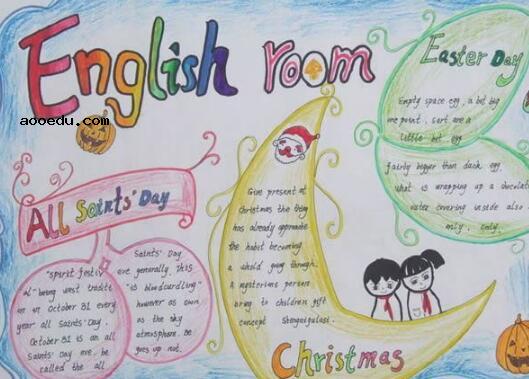 English room
aooedu.com
Easter Day
Empty space egg, a bit big
me point. Sort are a
little bit egg
fairly bigger than duck egg,
what is wrapping up a chocolat
water covering inside also
only. Only.
All Saints' Day
"spirit festiv
al" being west traditi
on on October 31 every
year all Saints' Day.
October 31 is an all
Saints' Day eve, be
called the all
Saints' Day
eve generally, this
is bloodcurdling"
however as own
as the sky
atmosphere. Be
goes up not.
Give present at
Christmas the thing
has already approache
the habit becoming
a world going through.
A mysterious person
bring to children gift
concept
Christmas